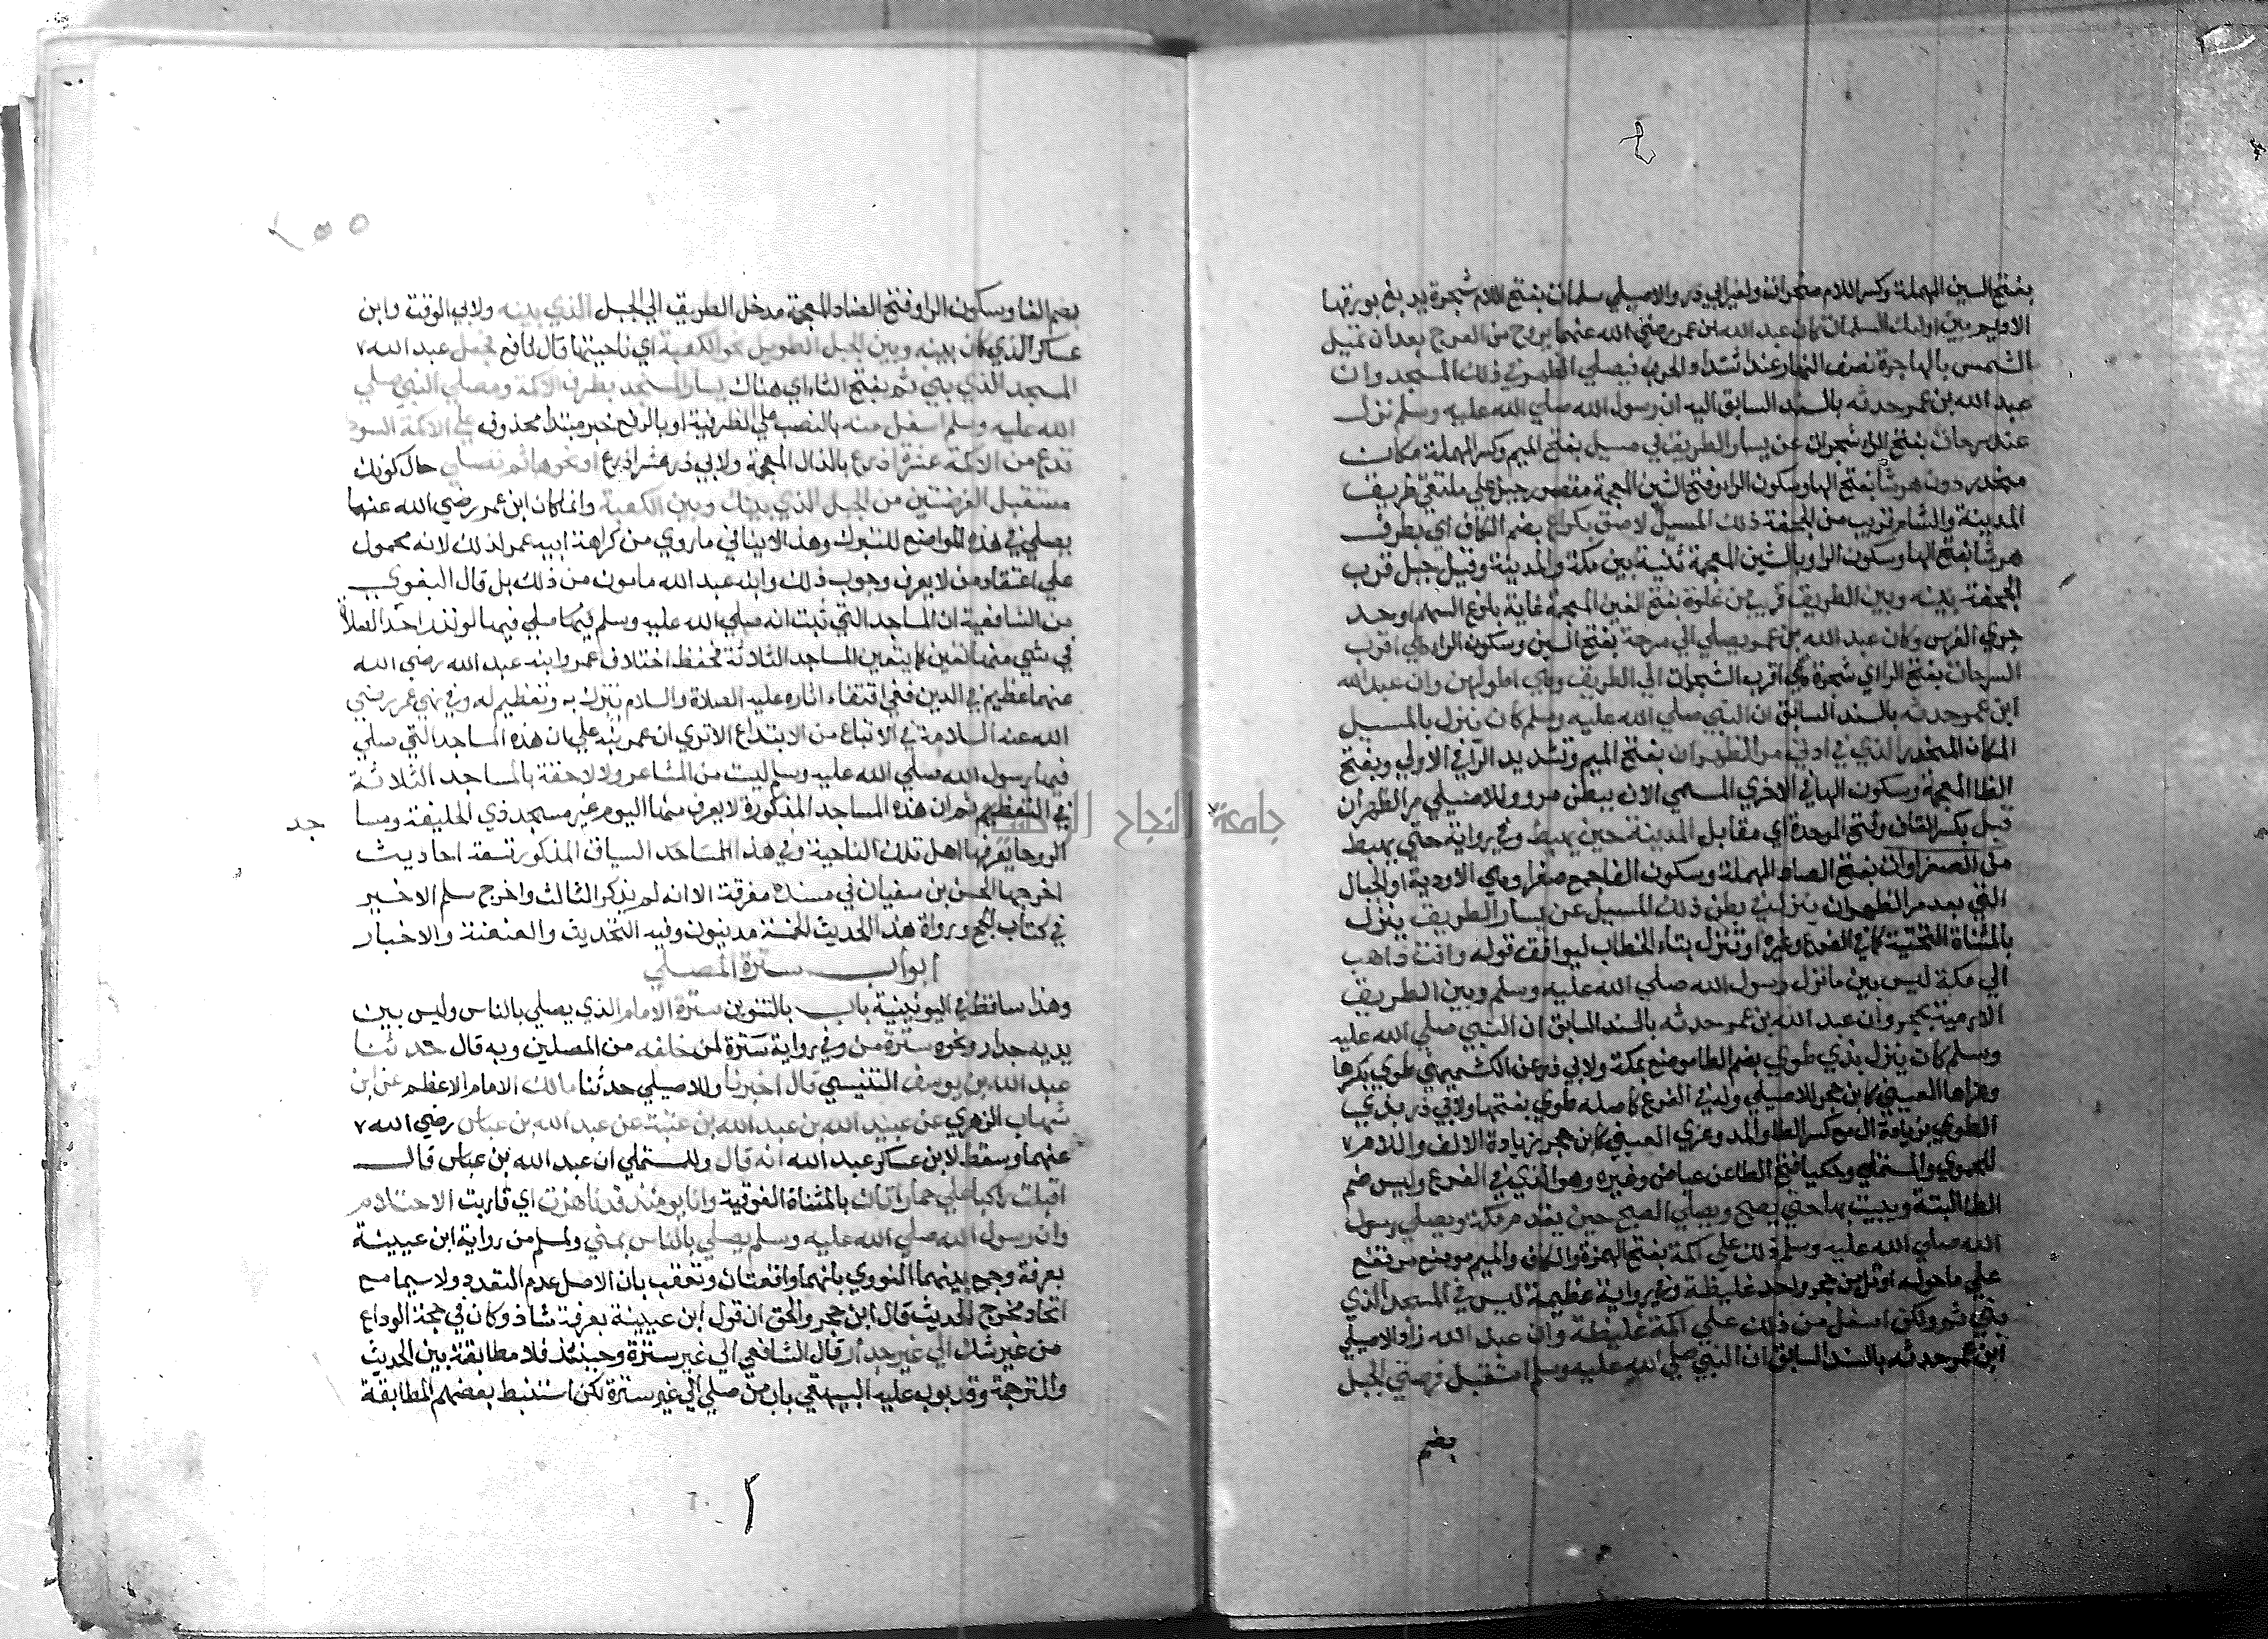 بفتح السين المهملة وكسر اللام صخرات ولغير ابي ذر والاصيلي سلمات بفتح اللام شجرة يدبغ بورقها
الاديم بين اولئك السلمات كان عبد الله ابن عمر رضي الله عنهما يروح من العرج بعد ان تميل
الشمس بالهاجرة نصف النهار عند اشتداد الحر فيصلي الظهر في ذلك المسجد وان
عبد الله بن عمر حدثه بالسند السابق اليه ان رسول الله صلي الله عليه وسلم نزل
عند سرحات بفتح الرا شجرات عن يسار الطريق في مسيل بفتح الميم وكسر المهملة مكان
منحدر دون هرشا بفتح الها وسكون الرا وفتح الشين المعجمة مقصور جبل علي ملتقي طريق
المدينة والشام قريب من الجحفة ذلك المسيل لاصق بكراع بضم الكاف اي بطرف
هرشا بفتح الها وسكون الرا وبالشين المعجمة ثنية بين مكة والمدينة وقيل جبل قرب
الجحفة بينه وبين الطريق قريب من غلوة بفتح الغين المعجمة غاية بلوغ السهم او حد
جري الفرس وكان عبد الله بن عمر يصلي الي سرحة بفتح السين وسكون الرا هي اقرب
السرحات بفتح الرا اي شجرة هي اقرب الشجرات الي الطريق وهي اطولهن وان عبد الله
ابن عمر حدثه بالسند السابق ان النبي صلي الله عليه وسلم كان ينزل بالمسيل
المكان المنحدر الذي في ادني مر الظهران بفتح الميم وتشديد الرا في الاولي وبفتح
الظا المعجمة وسكون الها في الاخري المسمي الان ببطن مرو وللاصيلي مر الظهران
قبل بكسر القاف وفتح الموحدة اي مقابل المدينة حين يهبط وفي رواية حتي يهبط
من الصفراوات بفتح الصاد المهملة وسكون الفا جمع صفرا وهي الاودية او الجبال
التي بعد مر الظهران ينزل في بطن ذلك المسيل عن يسار الطريق ينزل
بالمثناة التحتية كما في الفرع وغيره او تنزل بتاء الخطاب ليوافق قوله وانت ذاهب
الي مكة ليس بين منزل رسول الله صلي الله عليه وسلم وبين الطريق
الا رمية بحجر وان عبد الله بن عمر حدثه بالسند السابق ان النبي صلي الله عليه
وسلم كان ينزل بذي طوي بضم الطا موضع بمكة ولابي ذر عن الكشميهني طوي بكسرها
وعزاها العيني كابن حجر للاصيلي وله في الفرع كاصله طوي بفتحها ولابي ذر بذي
الطوي بزيادة ال مع كسر الطا والمد وعزي العيني كابن حجر زيادة الالف واللام
للحموي والمستملي وحكيا فتح الطا عن عياض وغيره وهو الذي في الفرع وليس ضم
الطا البتة ويبيت بها حتي يصبح ويصلي الصبح حين يقدم مكة ويصلي رسول
الله صلي الله عليه وسلم ذلك علي اكمة بفتح الهمزة والكاف والميم موضع مرتفع
علي ما حوله او تل من حجر واحد غليظة وفي رواية عظيمة ليس في المسجد الذي
بني ثم ولكن اسفل من ذلك علي اكمة غليظة وان عبد الله زاد الاصيلي
ابن عمر حدثه بالسند السابق ان النبي صلي الله عليه وسلم استقبل فرضتي الجبل
بضم
بضم الفا وسكون الرا وفتح الضاد المعجمة مدخل الطريق الي الجبل الذي بينه ولابي الوقت وابن
عساكر الذي كان بينه وبين الجبل الطويل نحو الكعبة اي ناحيتها قال نافع فجعل عبد الله
المسجد الذي بني ثم بفتح الثا اي هناك يسار المسجد بطرف الاكمة ومصلي النبي صلي
الله عليه وسلم اسفل منه بالنصب علي الظرفية او بالرفع خبر مبتدا محذوف علي الاكمة السودا
تدع من الاكمة عشرة اذرع بالذال المعجمة ولابي ذر عشر اذرع او نحوها ثم تصلي حال كونك
مستقبل الفرضتين من الجبل الذي بينك وبين الكعبة وانما كان ابن عمر رضي الله عنهما
يصلي في هذه المواضع للتبرك وهذا لا ينافي ما روي من كراهة ابيه عمر لذلك لانه محمول
علي اعتقاد من لا يعرف وجوب ذلك وابنه عبد الله مامون من ذلك بل قال البغوي
من الشافعية ان المساجد التي ثبت انه صلي الله عليه وسلم فيها صلي فيها لو نذر احد الصلاة
في شي منها تعين كما يتعين المساجد الثلاثة فحفظ اختلاف عمر وابنه عبد الله رضي الله
عنهما عظيم في الدين ففي اقتفاء اثاره عليه الصلاة والسلام تبرك به وتعظيم له وفي نهي عمر رضي
الله عنه السلامة في الاتباع من الابتداع الا تري ان عمر نبه علي ان هذه المساجد التي صلي
فيها رسول الله صلي الله عليه وسلم ليست من المشاعر ولا لاحقة بالمساجد الثلاثة
في التعظيم ثم ان هذه المساجد المذكورة لا يعرف منها اليوم غير مسجد ذي الحليفة ومسا
جد
الروحا يعرفها اهل تلك الناحية وفي هذا المساجد السياق المذكور تسعة احاديث
اخرجها الحسن بن سفيان في مسنده مفرقة الا انه لم يذكر الثالث واخرج مسلم الاخير
في كتاب الحج ورواة هذا الحديث الخمسة مدنيون وفيه التحديث والعنعنة والاخبار
ابواب سترة المصلي
وهذا ساقط في اليونينية باب بالتنوين سترة الامام الذي يصلي بالناس وليس بين
يديه جدار ونحوه سترة من وفي رواية سترة لمن خلفه من المصلين وبه قال حدثنا
عبد الله بن يوسف التنيسي قال اخبرنا وللاصيلي حدثنا مالك الامام الاعظم عن ابن
شهاب الزهري عن عبيد الله بن عبد الله بن عتبة عن عبد الله بن عباس رضي الله
عنهما وسقط لابن عساكر عبد الله انه قال وللمستملي ان عبد الله بن عباس قال
اقبلت راكبا علي حمار اتان بالمثناة الفوقية وانا يومئذ قد ناهزت اي قاربت الاحتلام
وان رسول الله صلي الله عليه وسلم يصلي بالناس بمني ولمسلم من رواية ابن عيينة
بعرفة وجمع بينهما النووي بانهما واقعتان وتعقب بان الاصل عدم التعدد ولا سيما مع
اتحاد مخرج الحديث قال ابن حجر والحق ان قول ابن عيينة بعرفة شاذ وكان في حجة الوداع
من غير شك الي غير جدار قال الشافعي الي غير سترة وحينئذ فلا مطابقة بين الحديث
والترجمة وقد بوب عليه البيهقي باب من صلي الي غير سترة لكن استنبط بعضهم المطابقة
جامعة النجاح